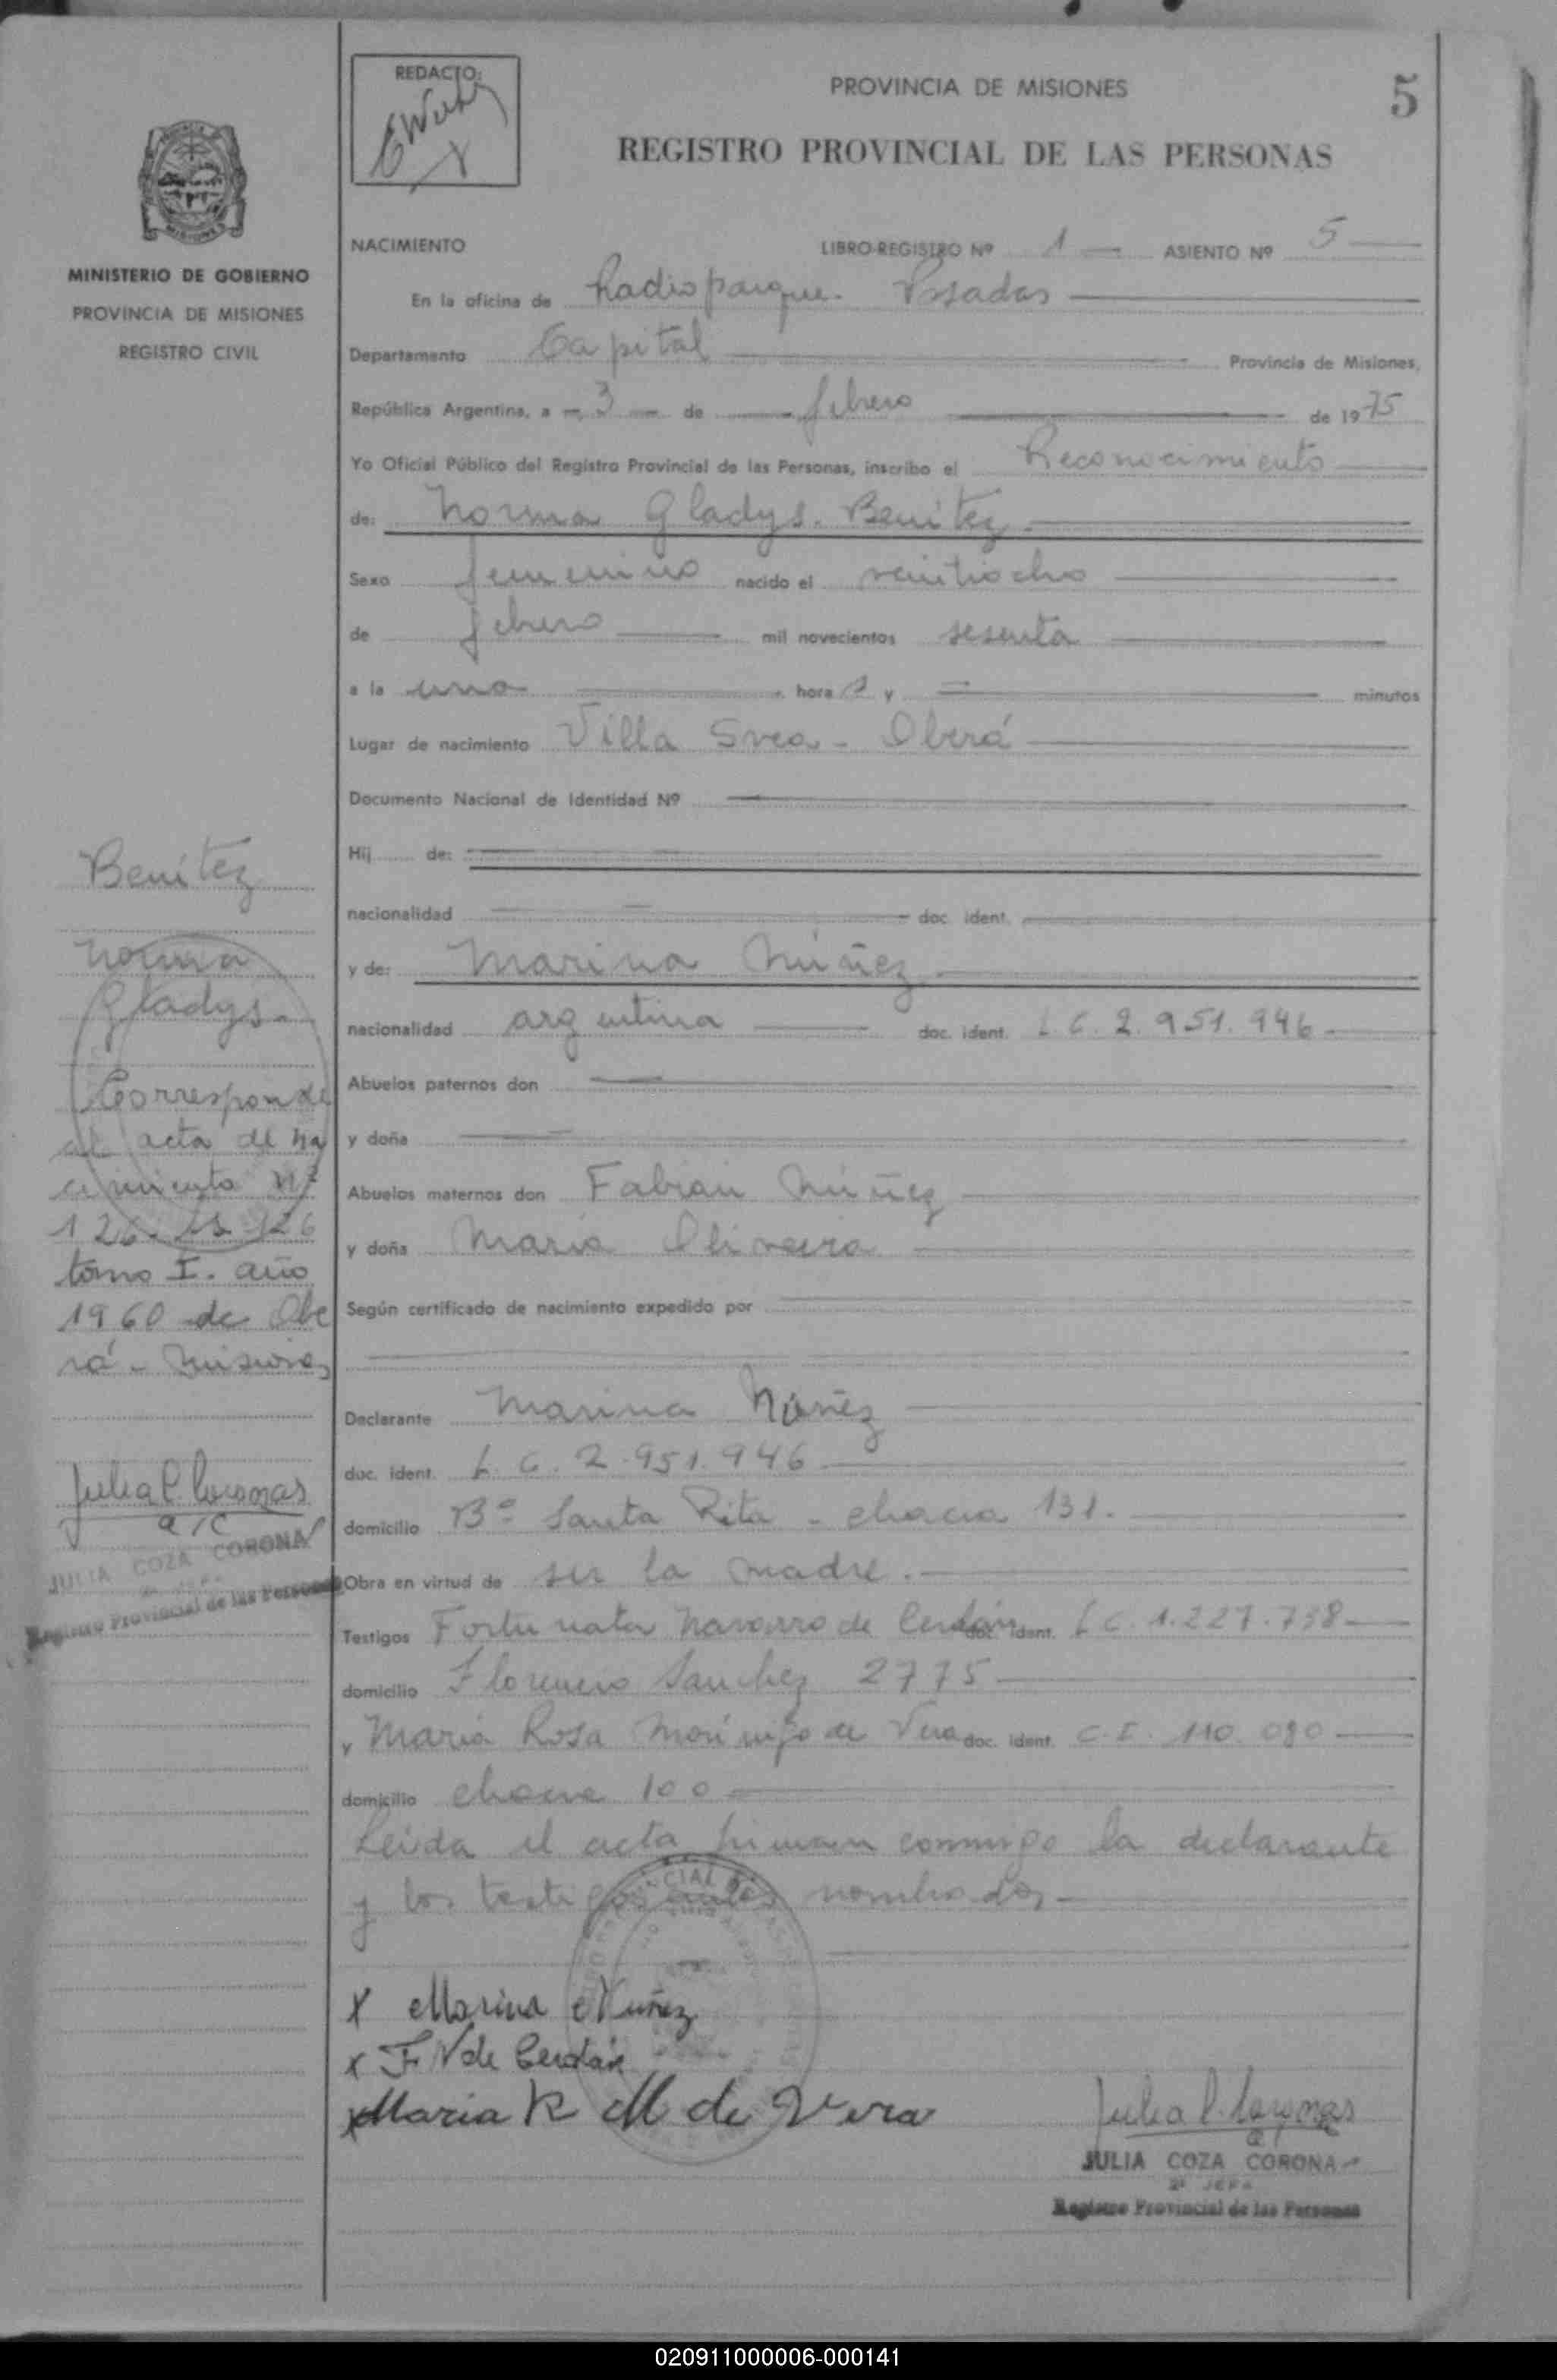 REDACTO:
PROVINCIA DE MISIONES
5
REGISTRO PROVINCIAL DE LAS PERSONAS
MINISTERIO DE GOBIERNO
PROVINCIA DE MISIONES
REGISTRO CIVIL
NACIMIENTO LIBRO-REGISTRO Nº 1 ASIENTO Nº 5
En la oficina de Radioparque. Posadas
Departamento Capital Provincia de Misiones,
República Argentina, a 3 de febrero de 1975
Yo Oficial Público del Registro Provincial de las Personas, inscribo el Reconocimiento
de: Norma Gladys. Benítez
Sexo femenino nacido el veintiocho
de febrero mil novecientos sesenta
a la una hora y minutos
Lugar de nacimiento Villa Svea - Oberá
Documento Nacional de Identidad Nº
Hij de:
nacionalidad doc. ident.
y de: Marina Núñez
nacionalidad argentina doc. ident. L.C. 2.951.946
Abuelos paternos don
y doña
Abuelos maternos don Fabian Núñez
y doña Maria Oliveira
Según certificado de nacimiento expedido por
Declarante Marina Núñez
doc. ident. L.C. 2.951.946
domicilio Bº Santa Rita - chacra 131.
Obra en virtud de ser la madre.
Testigos Fortunata Navarro de Cerdán doc. ident. L.C. 1.227.738
domicilio Florencio Sanchez 2775
y Maria Rosa Morínigo de Vera doc. ident. C.I. 110.090
domicilio chacra 100
Leida el acta firman conmigo la declarante
y los testigos antes nombrados
X Marina Nuñez
x F N de Cerdán
x Maria R M de Vera
JULIA COZA CORONA
2ª JEFA
Registro Provincial de las Personas
Benítez
Norma
Gladys.
Corresponde
al acta de Na
cimiento Nº
126 Fs 126
tomo I. año
1960 de Obe
rá - Misiones
a/c
JULIA COZA CORONA
Registro Provincial de las Personas
020911000006-000141